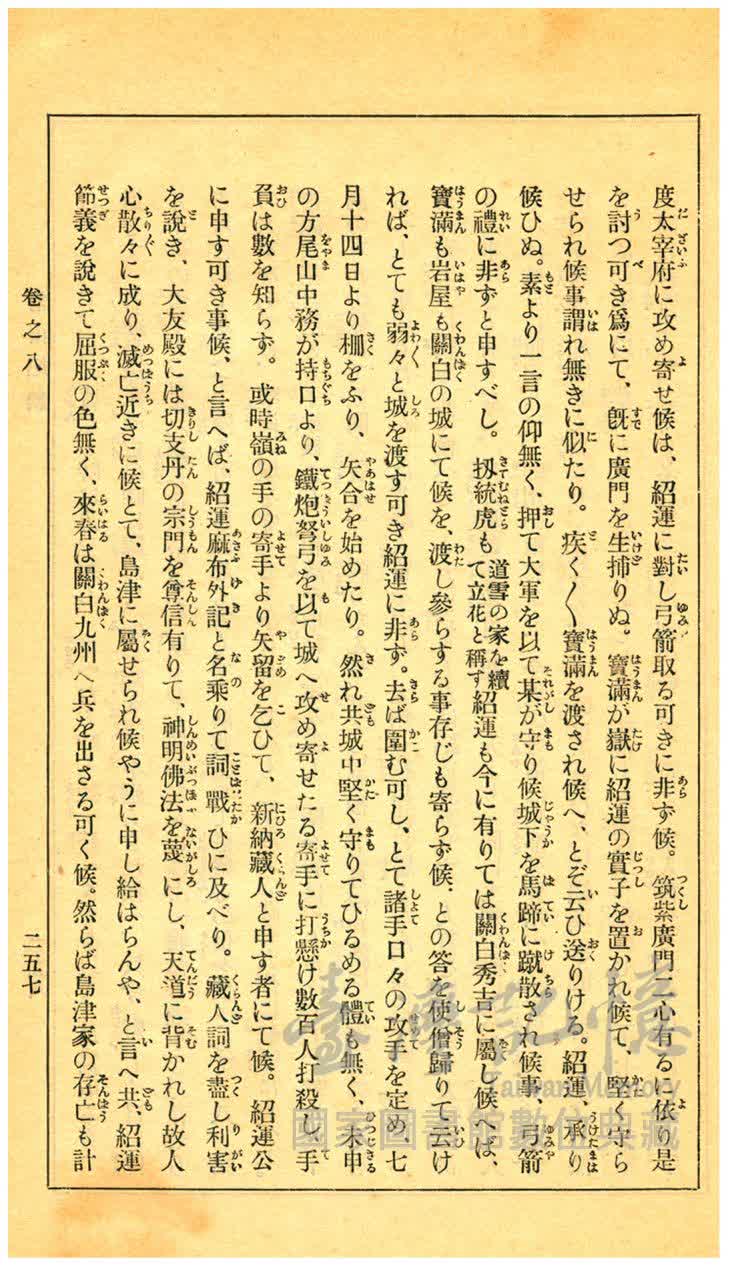 度太宰府に攻め寄せ候は、紹運に對し弓箭取る可きに非ず候。筑紫廣門二心有るに依り是
を討つ可き爲にて、既に廣門を生捕りぬ。寶滿が嶽に紹運の實子を置かれ候て、堅く守ら
せられ候事謂れ無きに似たり。疾く〱寶滿を渡され候へ、とぞ云ひ送りける。紹運、承り
候ひぬ。素より一言の仰無く、押て大軍を以て某が守り候城下を馬蹄に蹴散され候事、弓箭
の禮に非ずと申すべし。扨統虎も道雪の家を續て立花と稱す紹運も今に有りては關白秀吉に屬し候へば、
寶滿も岩屋も關白の城にて候を、渡し參らする事存じも寄らず候、との答を使僧歸りて云け
れば、とても弱々と城を渡す可き紹運に非ず。去ば圍む可し、とて諸手口々の攻手を定め、七
月十四日より柵をふり、矢合を始めたり。然れ共城中堅く守りてひるめる體も無く、未申
の方尾山中務が持口より、鐵炮弩弓を以て城へ攻め寄せたる寄手に打懸け數百人打殺し、手
負は數を知らず。或時嶺の手の寄手より矢留を乞ひて、新納藏人と申す者にて候。紹運公
に申す可き事候、と言へば、紹運麻布外記と名乘りて詞戰ひに及べり。藏人詞を盡し利害
を說き、大友殿には切支丹の宗門を尊信有りて、神明佛法を蔑にし、天道に背かれし故人
心散々に成り、滅亡近きに候とて、島津に屬せられ候やうに申し給はらんや、と言へ共、紹運
節義を說きて屈服の色無く、來春は關白九州へ兵を出さる可く候。然らば島津家の存亡も計
卷之八
二五七
臺灣記憶
Taiwan Memory
國家圖書館數位典藏